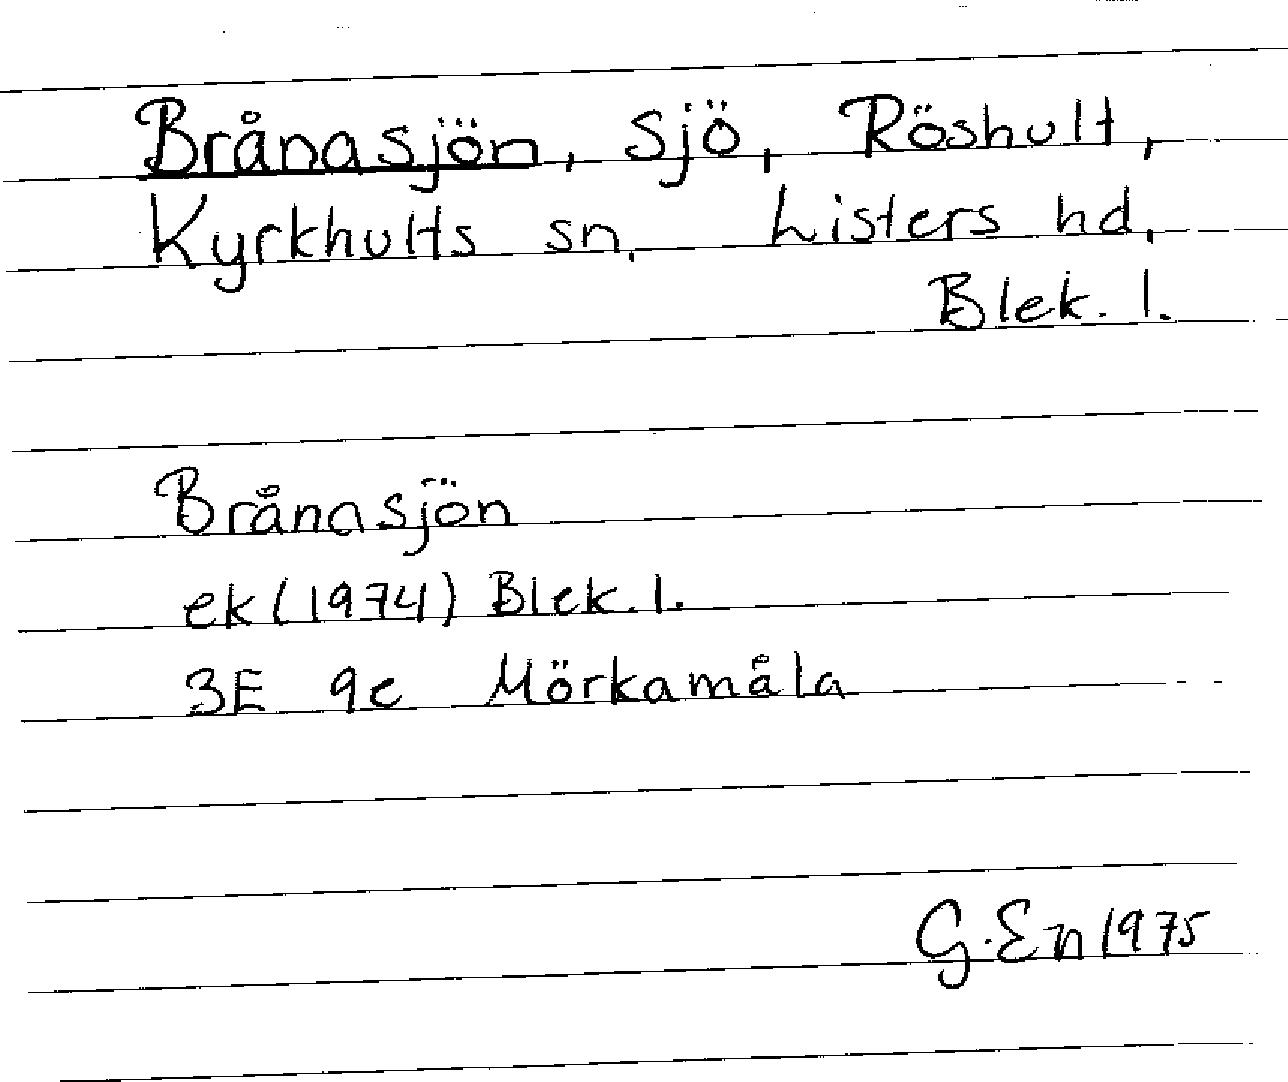 Brånasjön, sjö, Röshult,
Kyrkhults sn. Listers hd.
Blek. l.
Brånasjön
ek (1974) Blek. l.
3E 9c Mörkamåla
G. En 1975